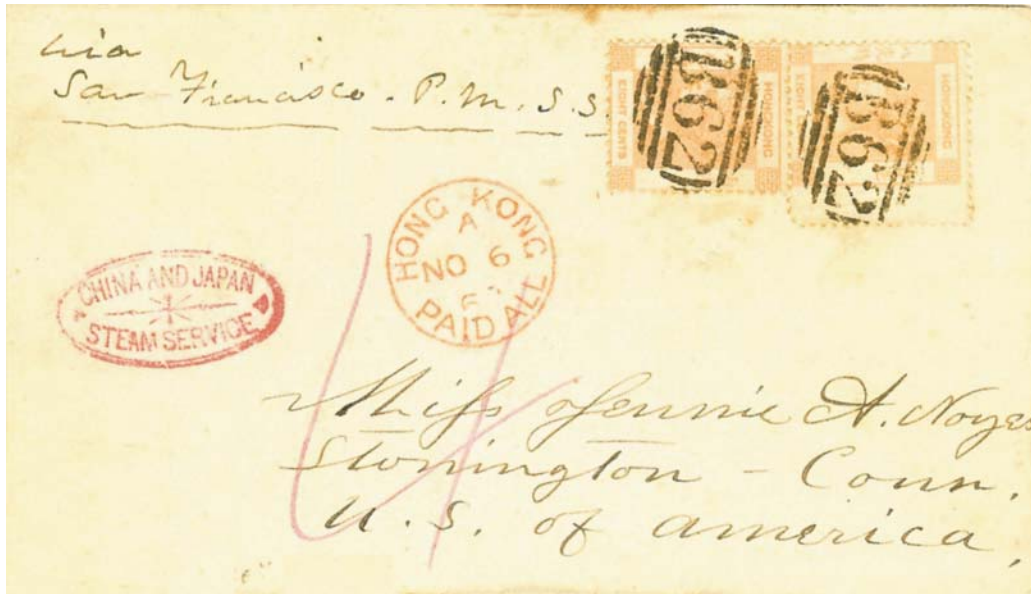 via
San Francisco. P. M. S. S
EIGHT CENTS
HONG KONG
B62
EIGHT
HONG KONG
B62
HONG KONG
A
NO 6
PAID ALL
CHINA AND JAPAN
STEAM SERVICE
4
Miss Jennie A. Noyes
Stonington - Conn.
U. S. of America,